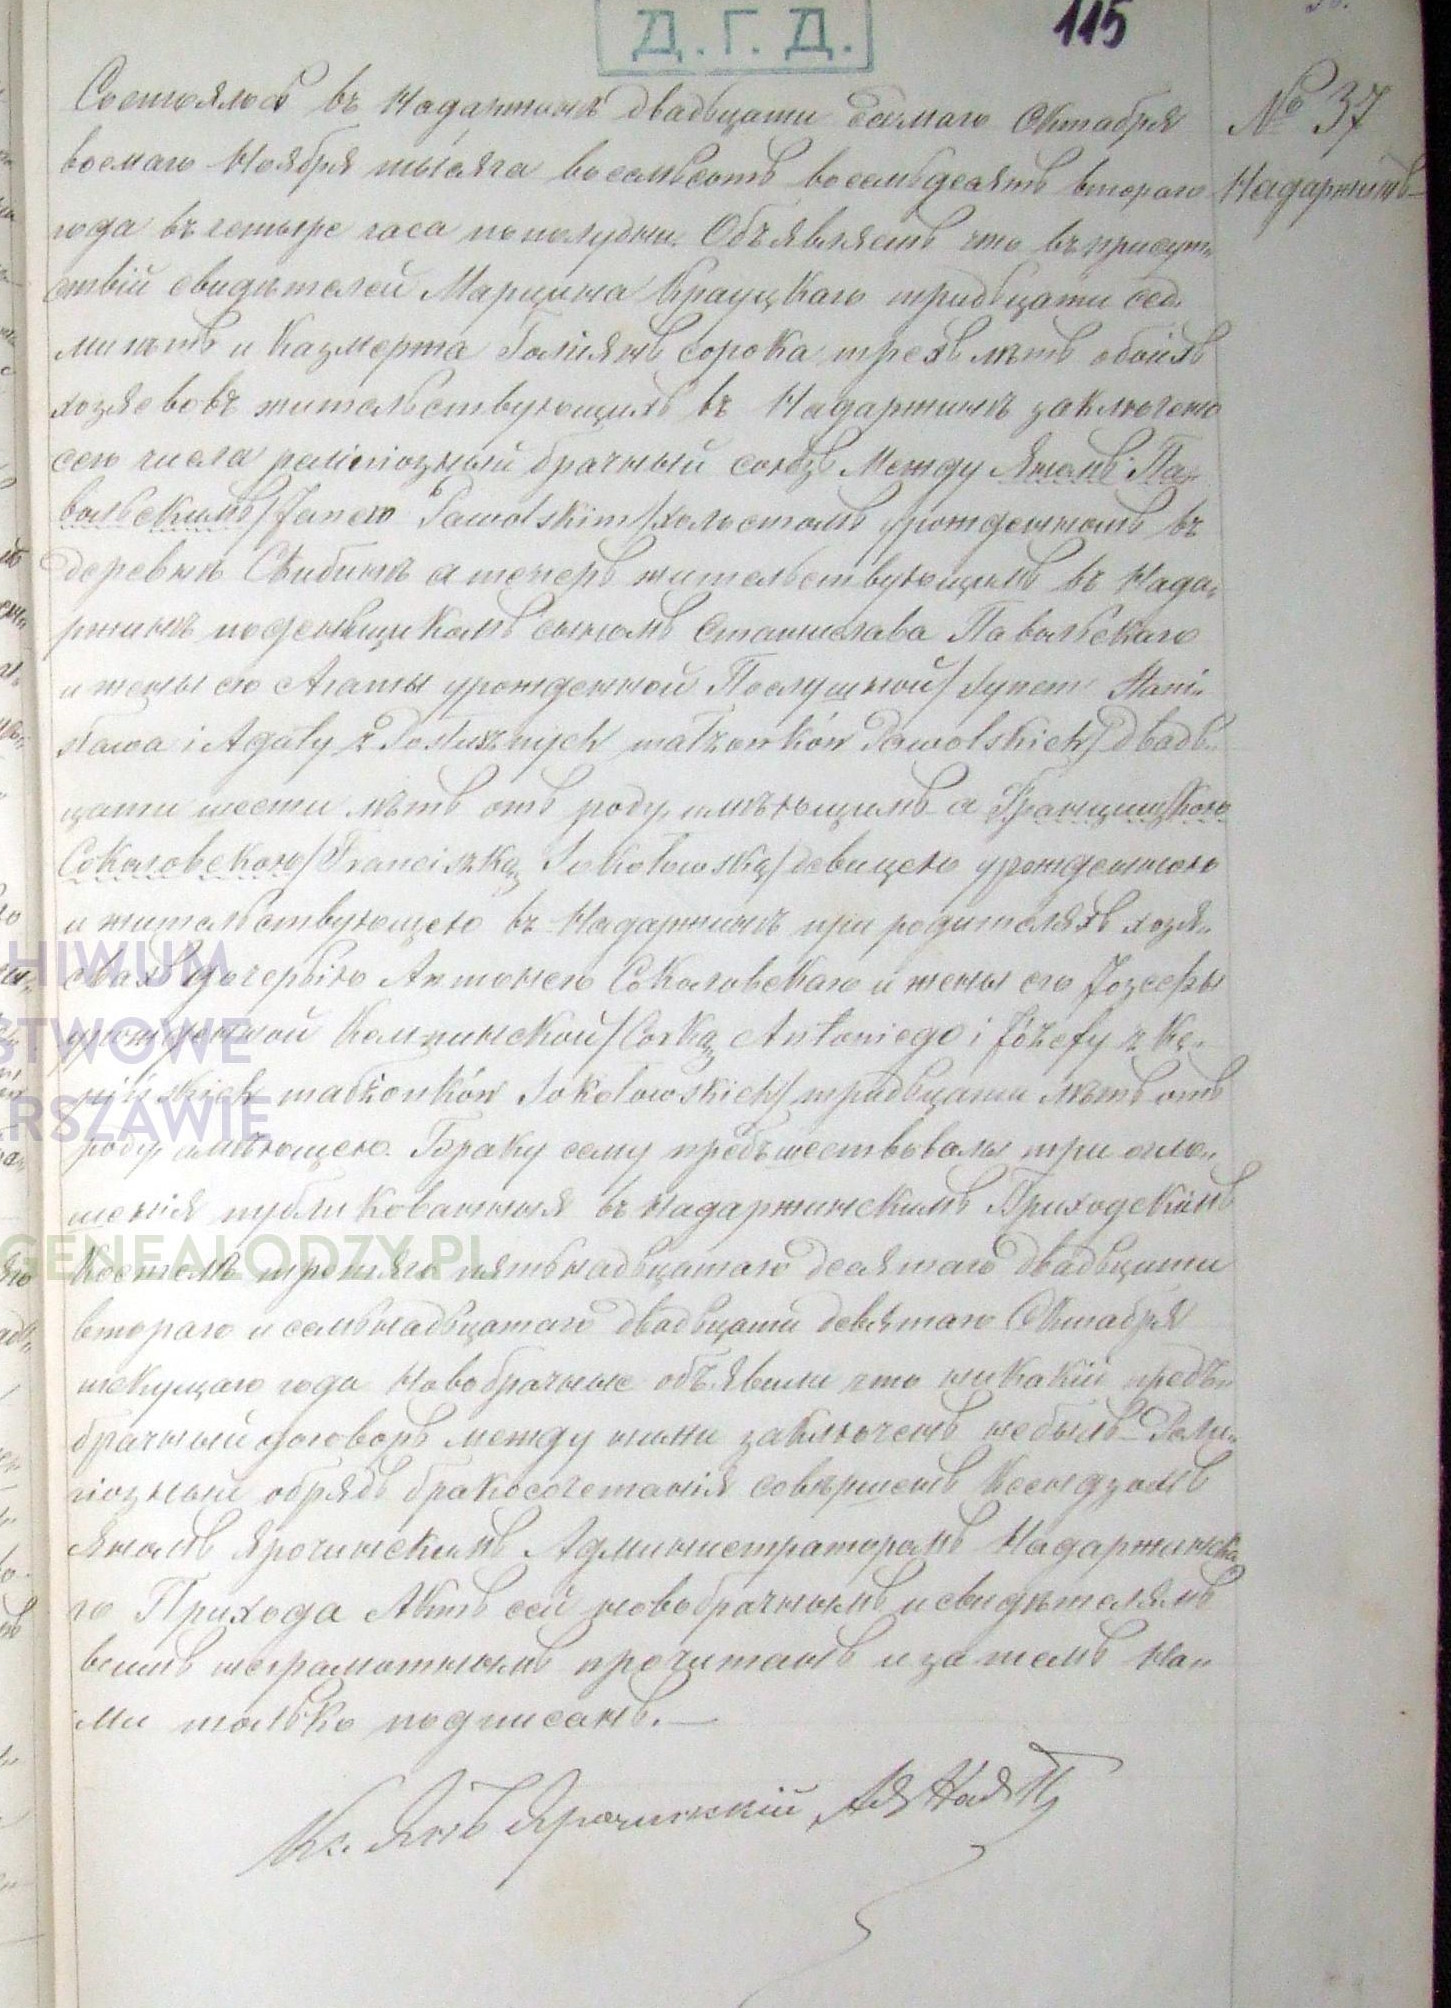 Д. Г. Д.
115
№ 37
Надаржинъ
Состоялось въ Надаржинѣ двадцати седмаго Октября
восмаго Ноября тысяча восемьсотъ восемьдесятъ втораго
года въ четыре часа пополудни. Объявляемъ что въ присут-
ствій свидѣтелей Марцина Крауцкаго тридцати сед
ми лѣтъ и Казмержа сорока трехъ лѣтъ обоихъ
хозяевовъ жительствующихъ въ Надаржинѣ заключено
сего числа религіозный брачный союзъ Между Яномъ Па-
вольскимъ/Janem Pawolskim/холостымъ урожденнымъ въ
деревнѣ а теперь жительствующимъ въ Нада-
ржинѣ поденьщикомъ сыномъ Станислава Павольскаго
и жены его Агаты урожденной Послушной/Synem Stani-
sława i Agaty z Posłusznych małżonków Pawolskich/двадь-
цати шести лѣтъ отъ роду имѣющимъ а Францишкою
Соколовскою/Franciszką Sokołowską/девицею урожденною
и жительствующею въ Надаржинѣ при родителяхъ хозя-
евахъ дочерью Антонего Соколовскаго и жены его Јозефы
урожденной Кемпинской/Corką Antoniego i Józefy z Kę-
pińskich małżonków Sokołowskich/тридцати лѣтъ отъ
роду имѣющею. Браку сему предшествовали три огло-
шенія публикованныя въ Надаржинскимъ Приходскимъ
Костелѣ третяго пятьнадцатаго десятаго двадцати
втораго и семьнадцатаго двадцати девятаго Октября
текущаго года Новобрачные объявили что никакій предъ-
брачный договоръ между ними заключенъ небылъ Рели-
гіозный обрядъ бракосочетанія совершенъ Ксендзомъ
Яномъ Ярочинскимъ Администраторомъ Надаржинска
го Прихода Актъ сей новобрачнымъ и свидѣтелямъ
всимъ неграмотнымъ прочитанъ и за темъ На-
ми только подписанъ.
Кс. Янъ Ярочинскій
ARCHIWUM
PAŃSTWOWE
WARSZAWIE
GENEALODZY.PL